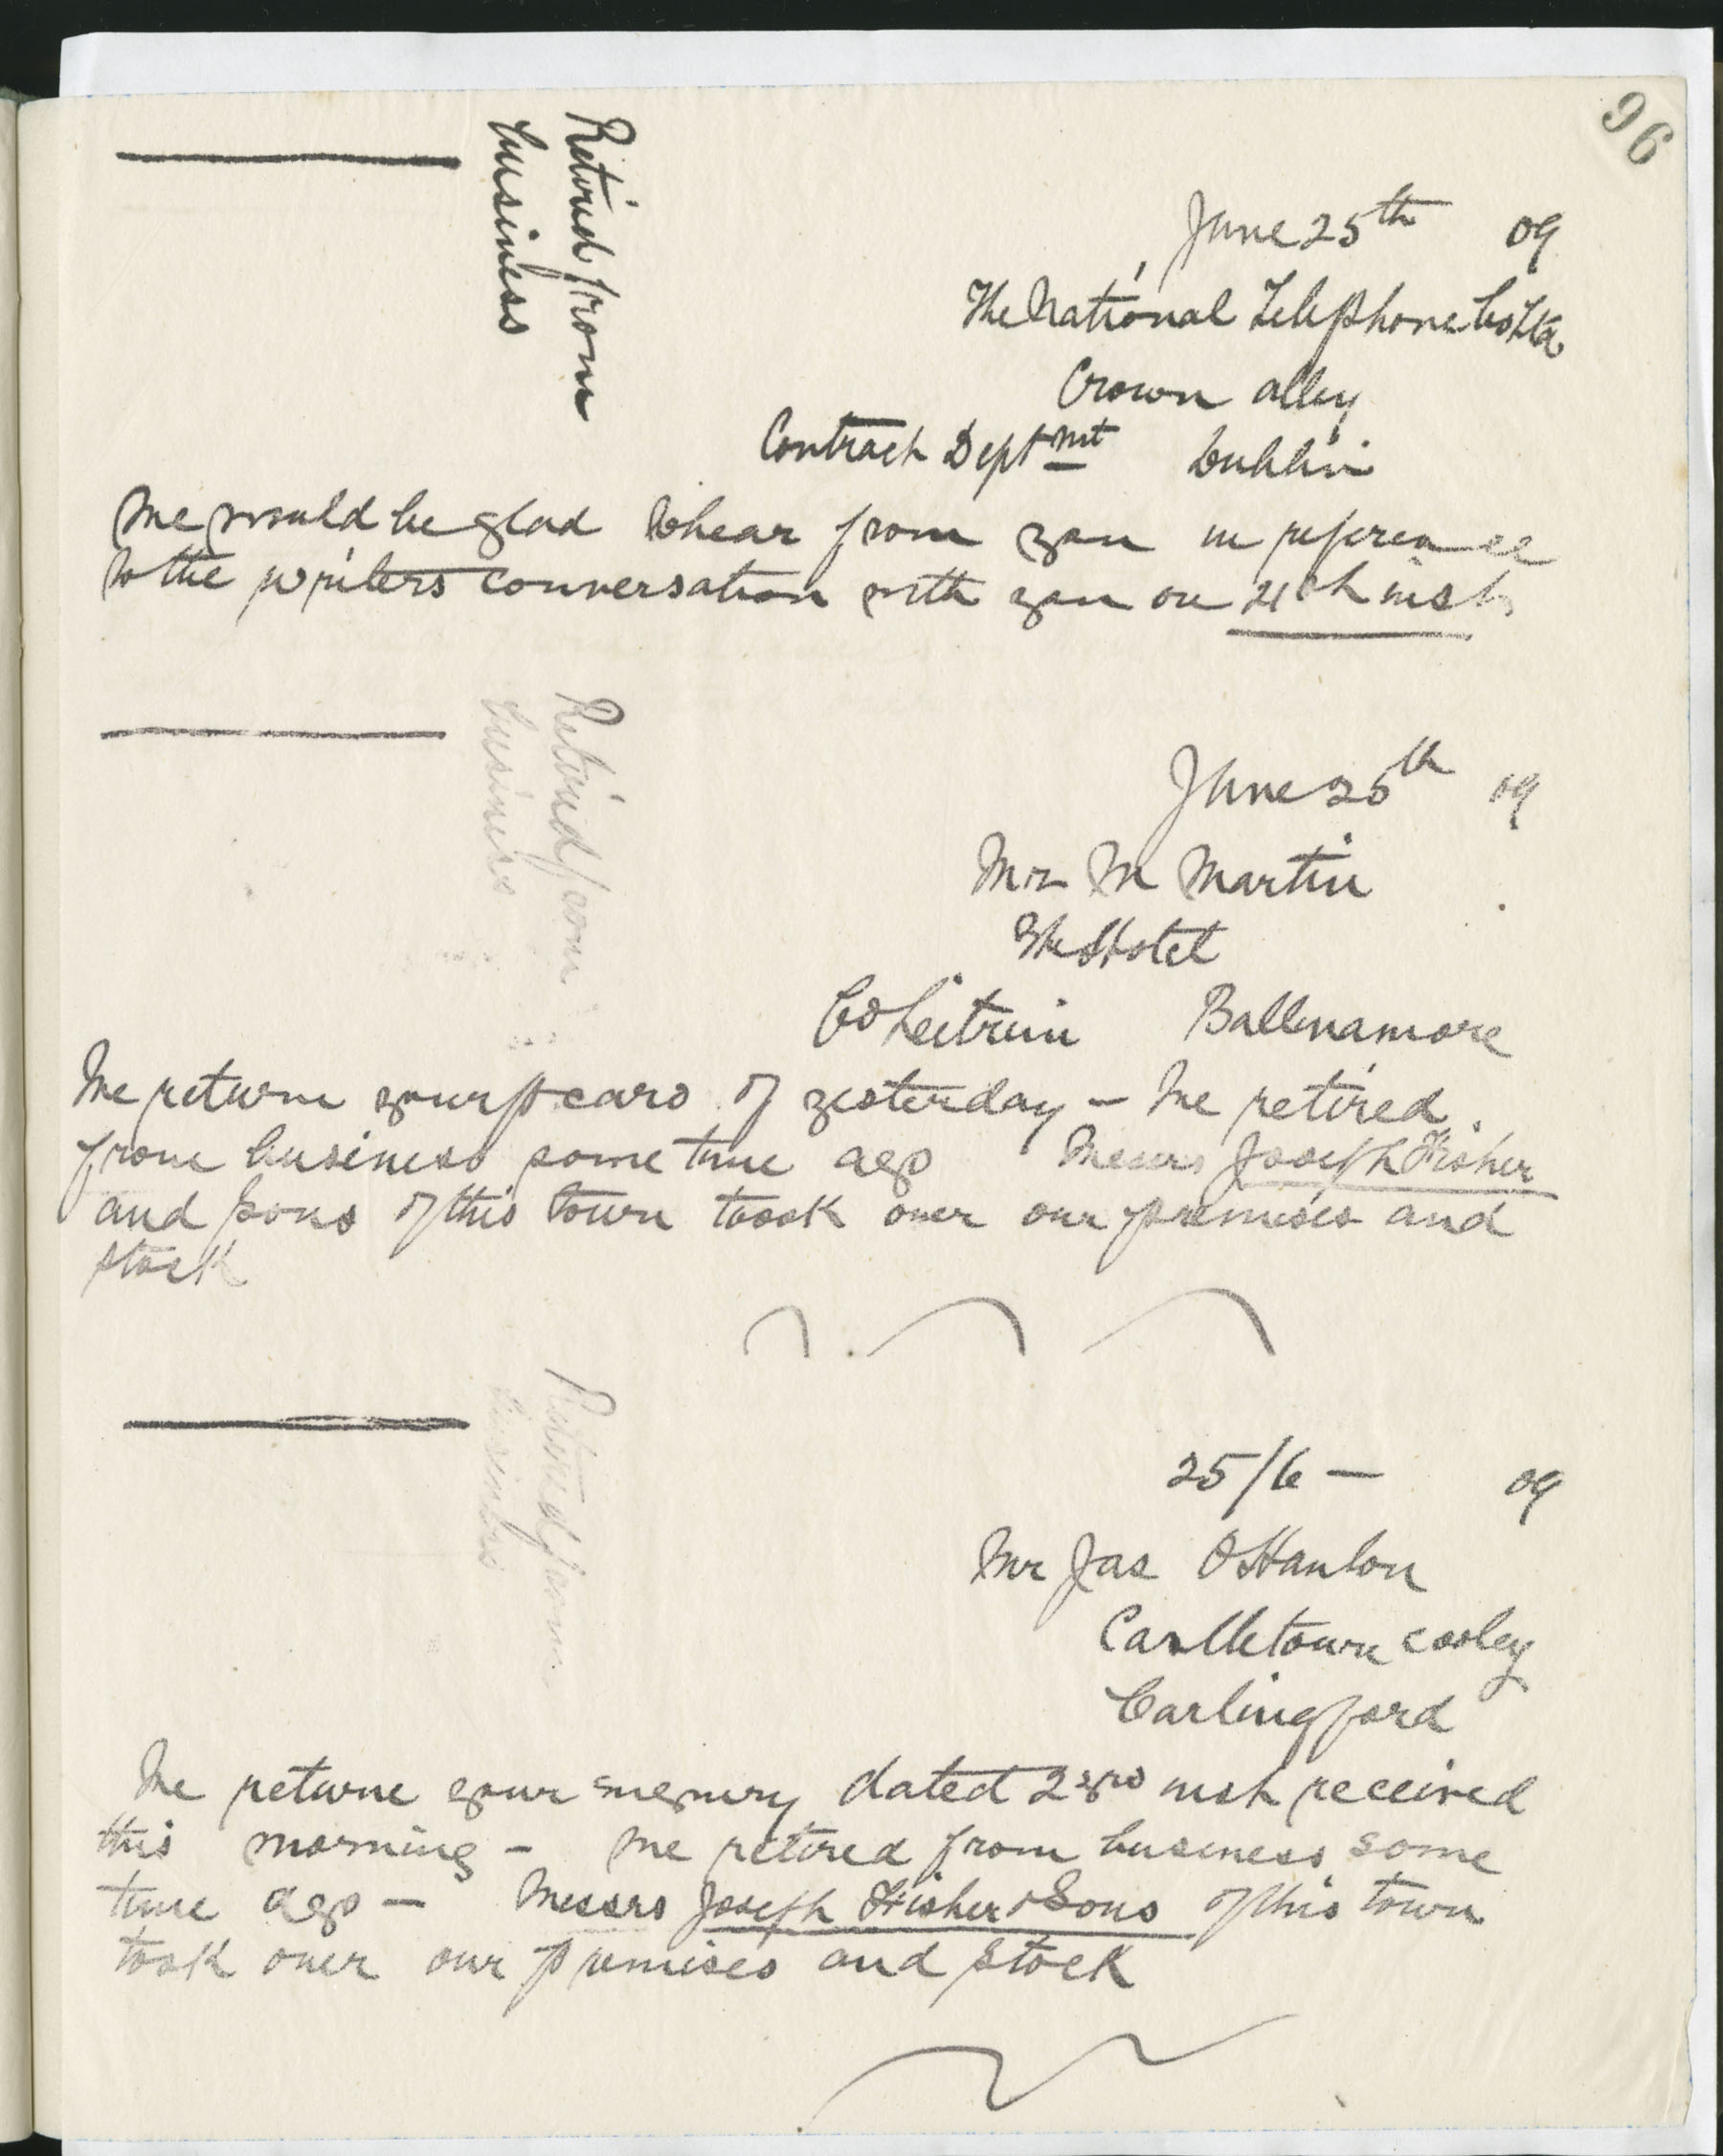 96
Retired from
business
June 25th 09
The National Telephone Co Ltd
Crown alley
Contract Deptmt Dublin
We would be glad to hear from you in reference
to the writers conversation with you on inst
Retired from
business
June 25th 09
Mr M Martin
The Hotel
Co Leitrim Ballinamore
We return your p card of yesterday – We retired
from business some time ago Messrs Joseph Fisher
and Sons of this town took over our premises and
stock
Retired from
business
25/6 — 09
Mr Jas OHanlon
Castletown Cooley
Carlingford
We return your enquiry dated 23rd inst received
this morning – We retired from business some
time ago — Messrs Joseph Fisher & Sons of this town
took over our premises and stock